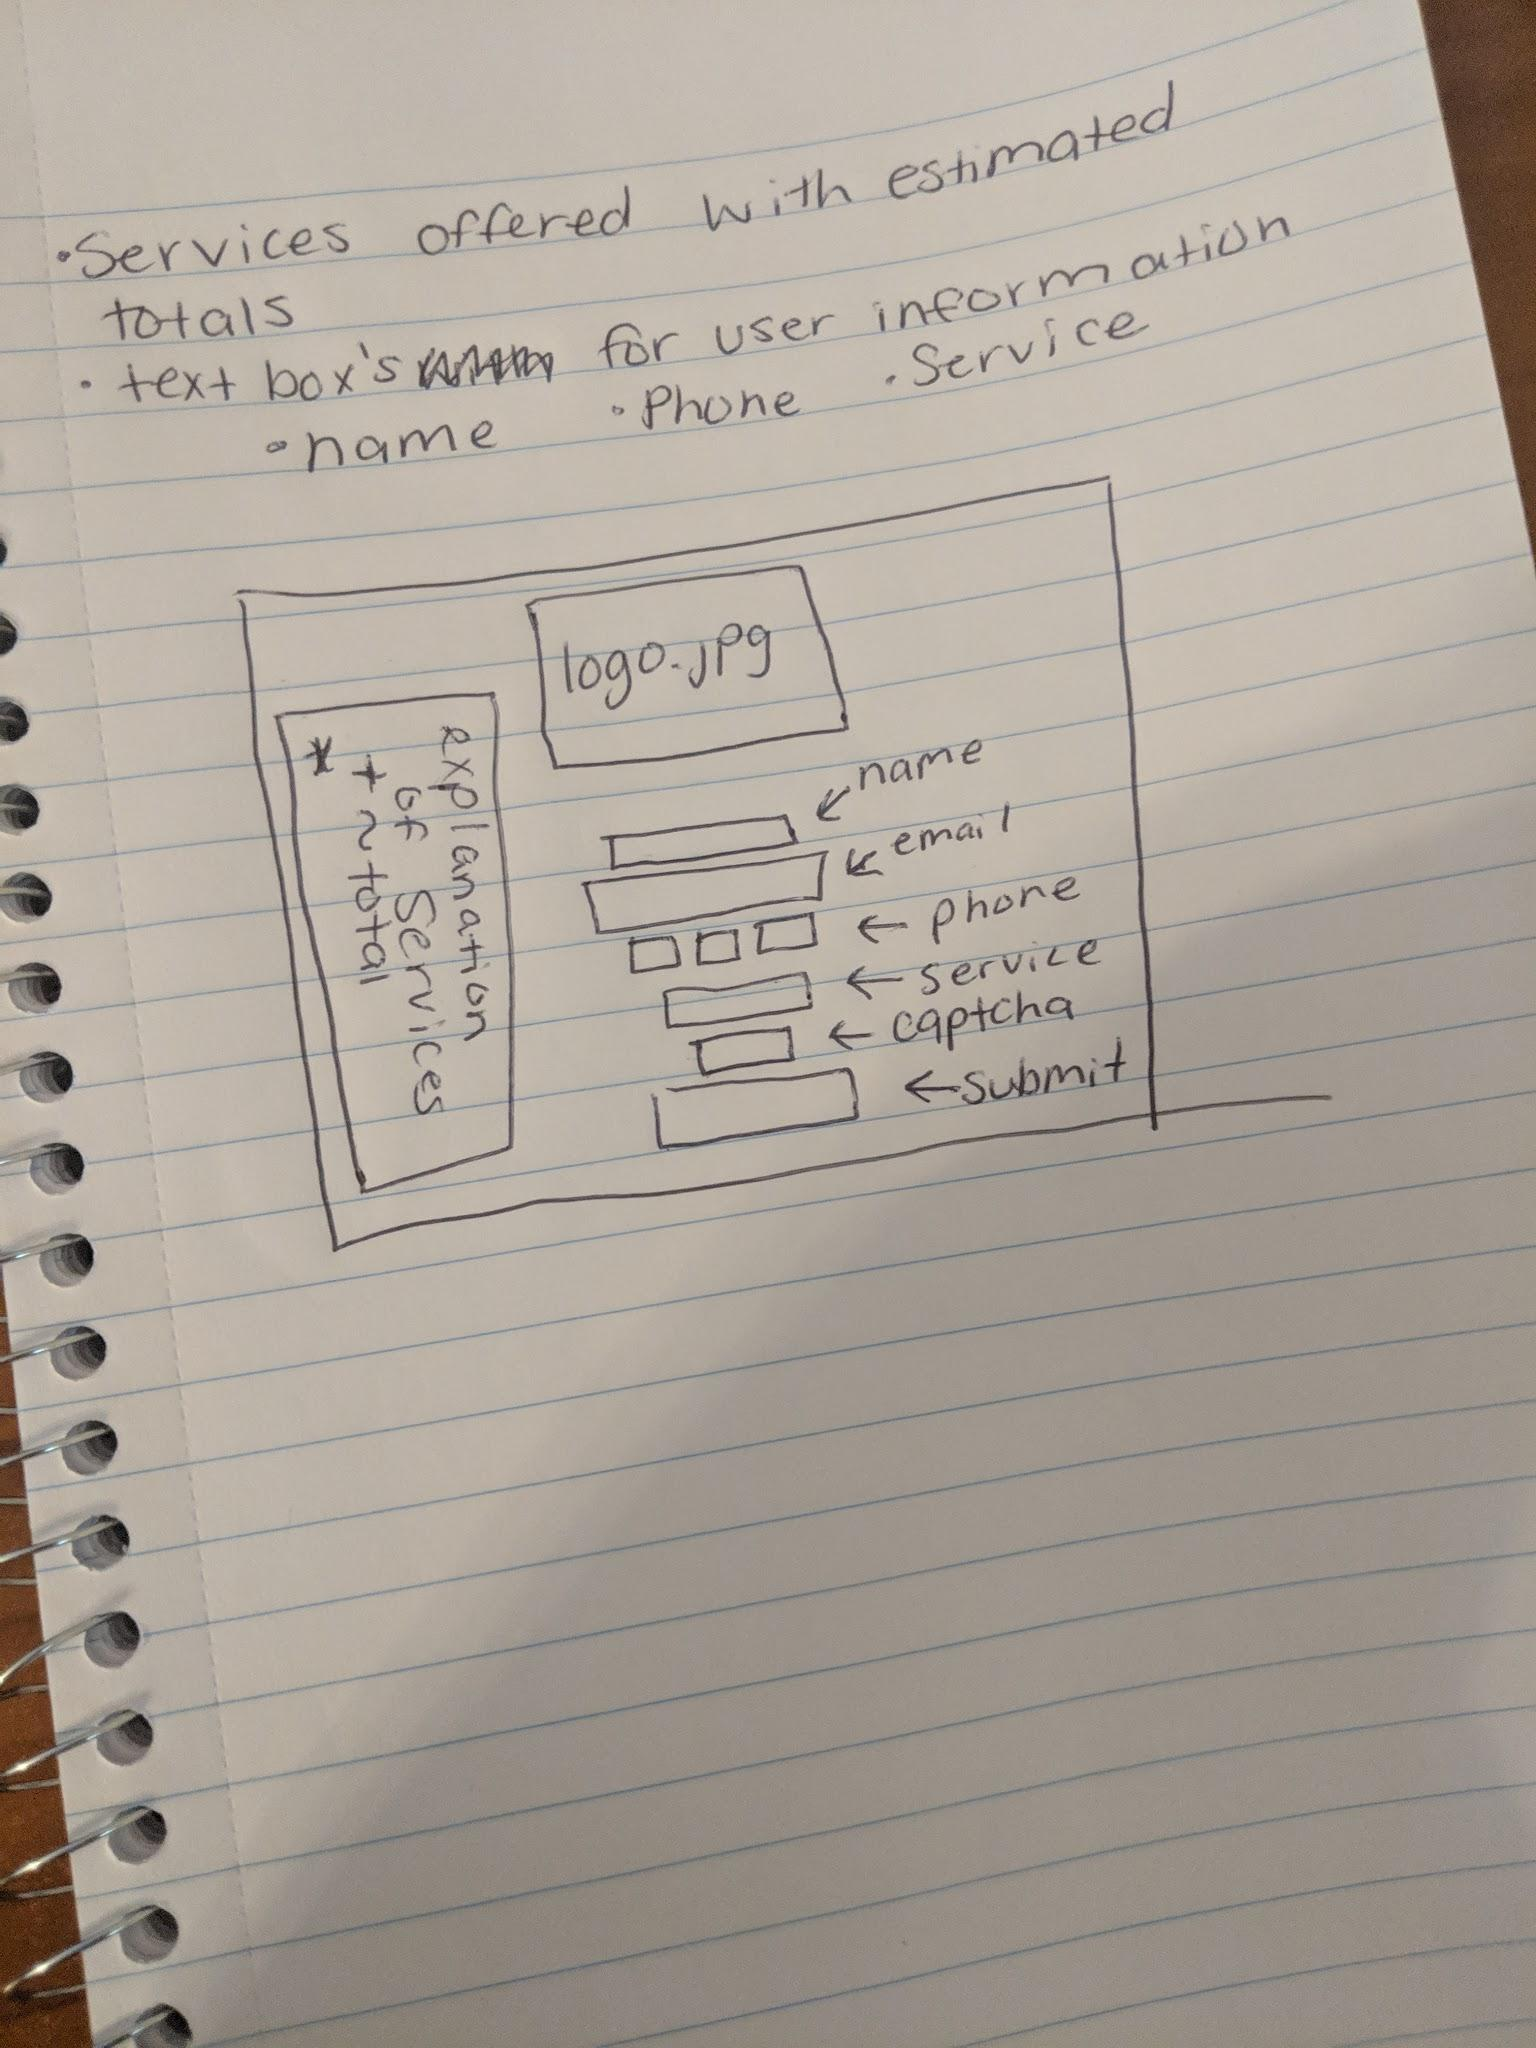 • Services offered with estimated
totals
• text box's for user information
• name • Phone • Service
logo.jpg
explanation
of Services
+ ~ total
*
← name
← email
← phone
← service
← captcha
← submit